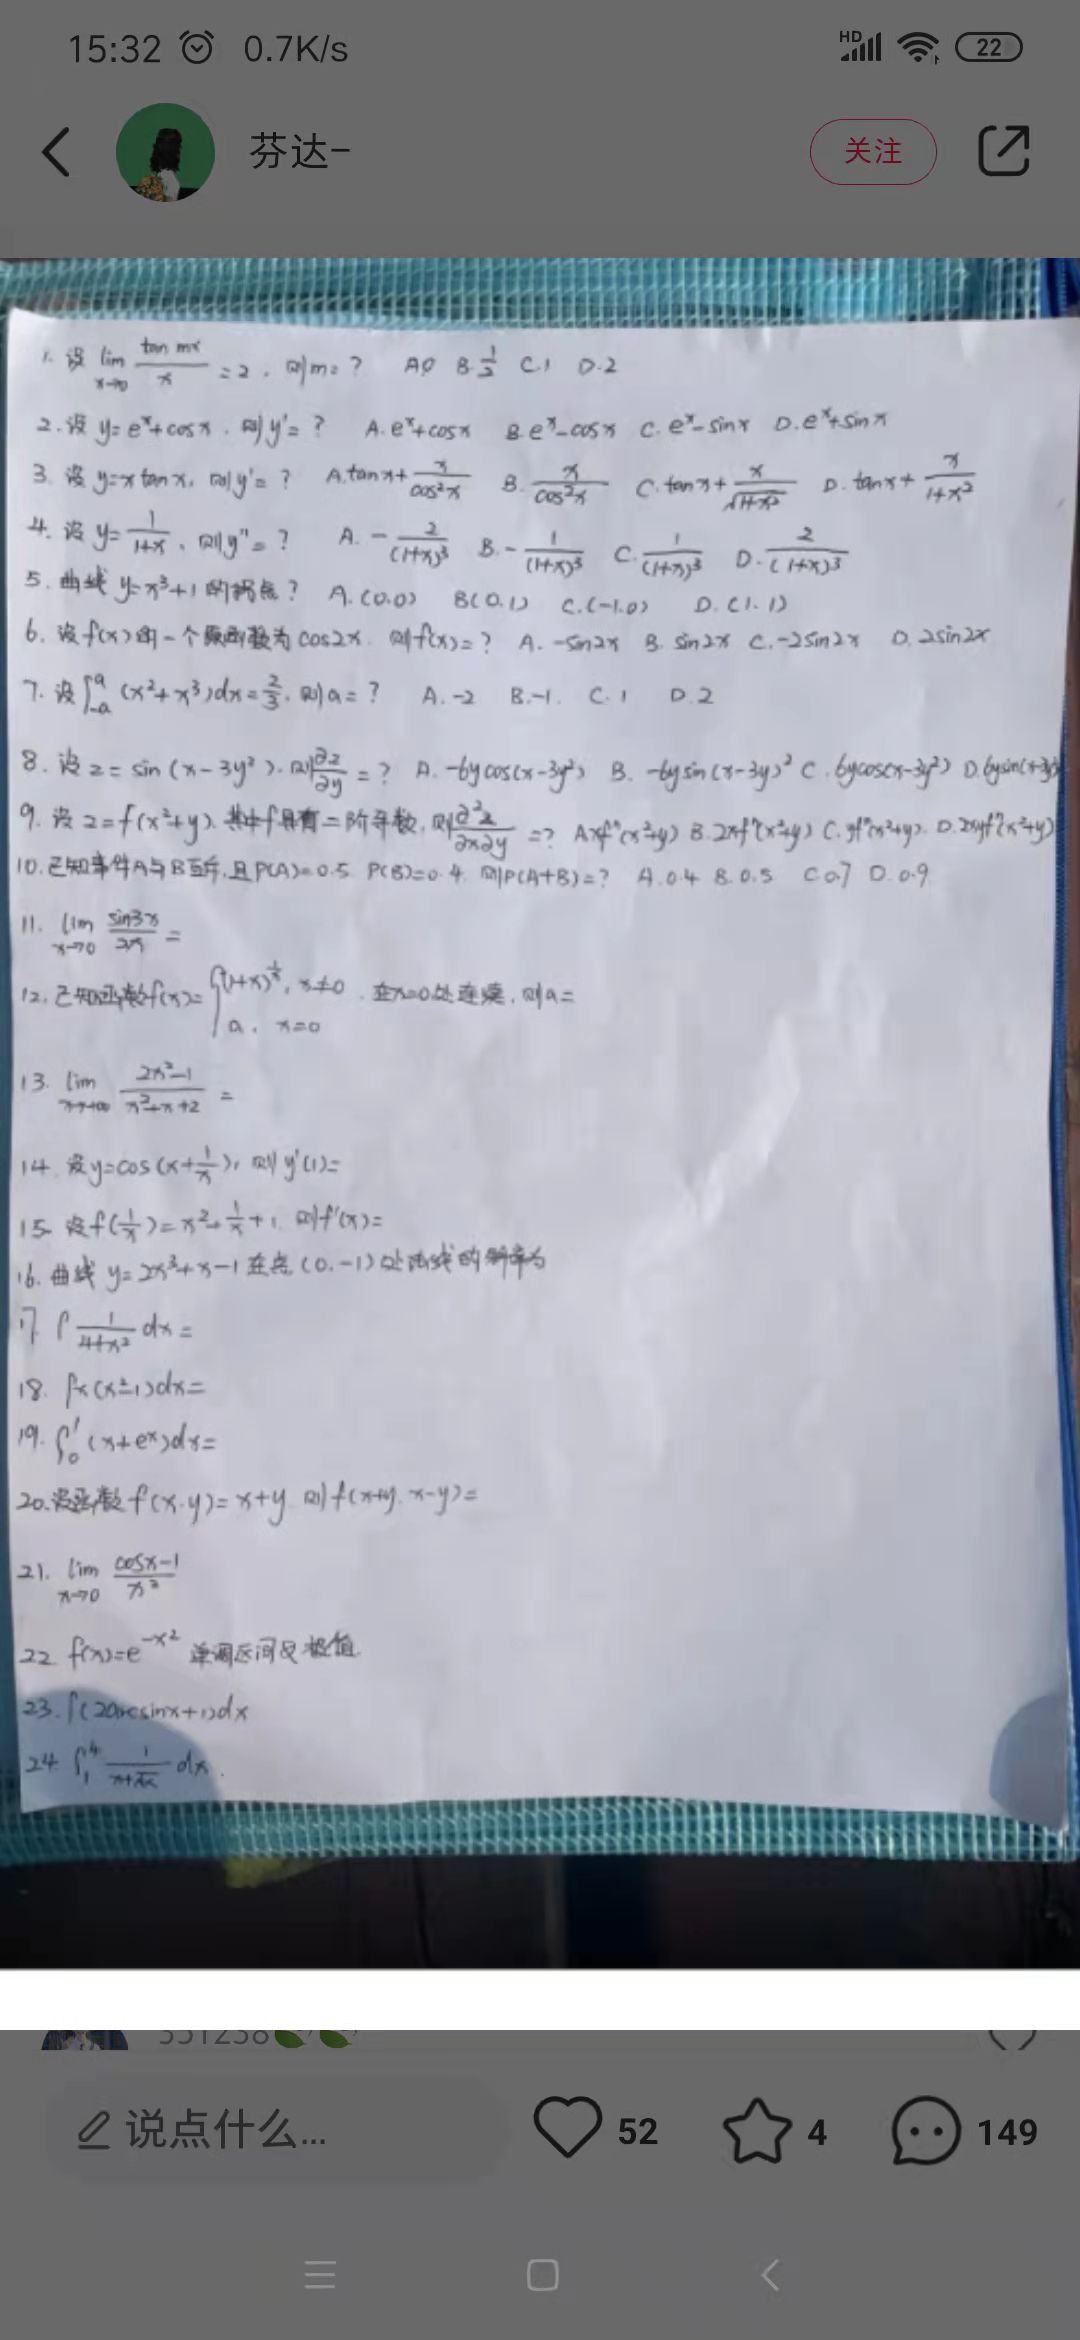 15:32 0.7K/s HD 22
芬达- 关注
1. 设 lim x→0 tan mx / x = 2, 则m=? A.0 B.1/2 C.1 D.2
2. 设 y=e^x+cosx, 则y'=? A.e^x+cosx B.e^x-cosx C.e^x-sinx D.e^x+sinx
3. 设 y=xtanx, 则y'=? A.tanx+x/cos²x B.x/cos²x C.tanx+x/√(1+x²) D.tanx+x/(1+x²)
4. 设 y=1/(1+x), 则y''=? A.-2/(1+x)³ B.-1/(1+x)³ C.1/(1+x)³ D.2/(1+x)³
5. 曲线 y=x³+1 的拐点? A.(0.0) B(0.1) C.(-1.0) D.(1.1)
6. 设f(x)的一个原函数为cos2x, 则f(x)=? A.-sin2x B.sin2x C.-2sin2x D.2sin2x
7. 设∫_-a^a (x²+x³)dx=2/3, 则a=? A.-2 B.-1. C.1 D.2
8. 设z=sin(x-3y²), 则∂z/∂y=? A.-6ycos(x-3y²) B.-6ysin(x-3y)² C.6ycos(x-3y²) D.6ysin(x+3y
9. 设z=f(x²+y), 其中f具有二阶导数, 则∂²z/∂x∂y=? A.xf''(x²+y) B.2xf''(x²+y) C.yf''(x²+y). D.2xyf''(x²+y)
10.已知事件A与B互斥,且P(A)=0.5 P(B)=0.4, 则P(A+B)=? A.0.4 B.0.5 C.0.7 D.0.9
11. lim x→0 sin3x/2x =
12. 已知函数f(x)={(1+x)^(1/x), x≠0 , 在x=0处连续,则a=
a, x=0
13. lim x→∞ (2x²-1)/(x²+x+2) =
14. 设y=cos(x+1/x), 则y'(1)=
15. 设f(1/x)=x²+1/x+1, 则f'(x)=
16. 曲线 y=2x³+x-1在点(0,-1)处法线的斜率为
17. ∫1/(4+x²) dx=
18. ∫x(x²-1)dx=
19. ∫_0^1 (x+e^x)dx=
20.设函数f(x.y)=x+y 则f(x+y, x-y)=
21. lim x→0 (cosx-1)/x²
22 f(x)=e^(-x²) 单调区间及极值
23. ∫(2arcsinx+1)dx
24 ∫_1^4 1/(x+√x) dx.
351238
说点什么... 52 4 149